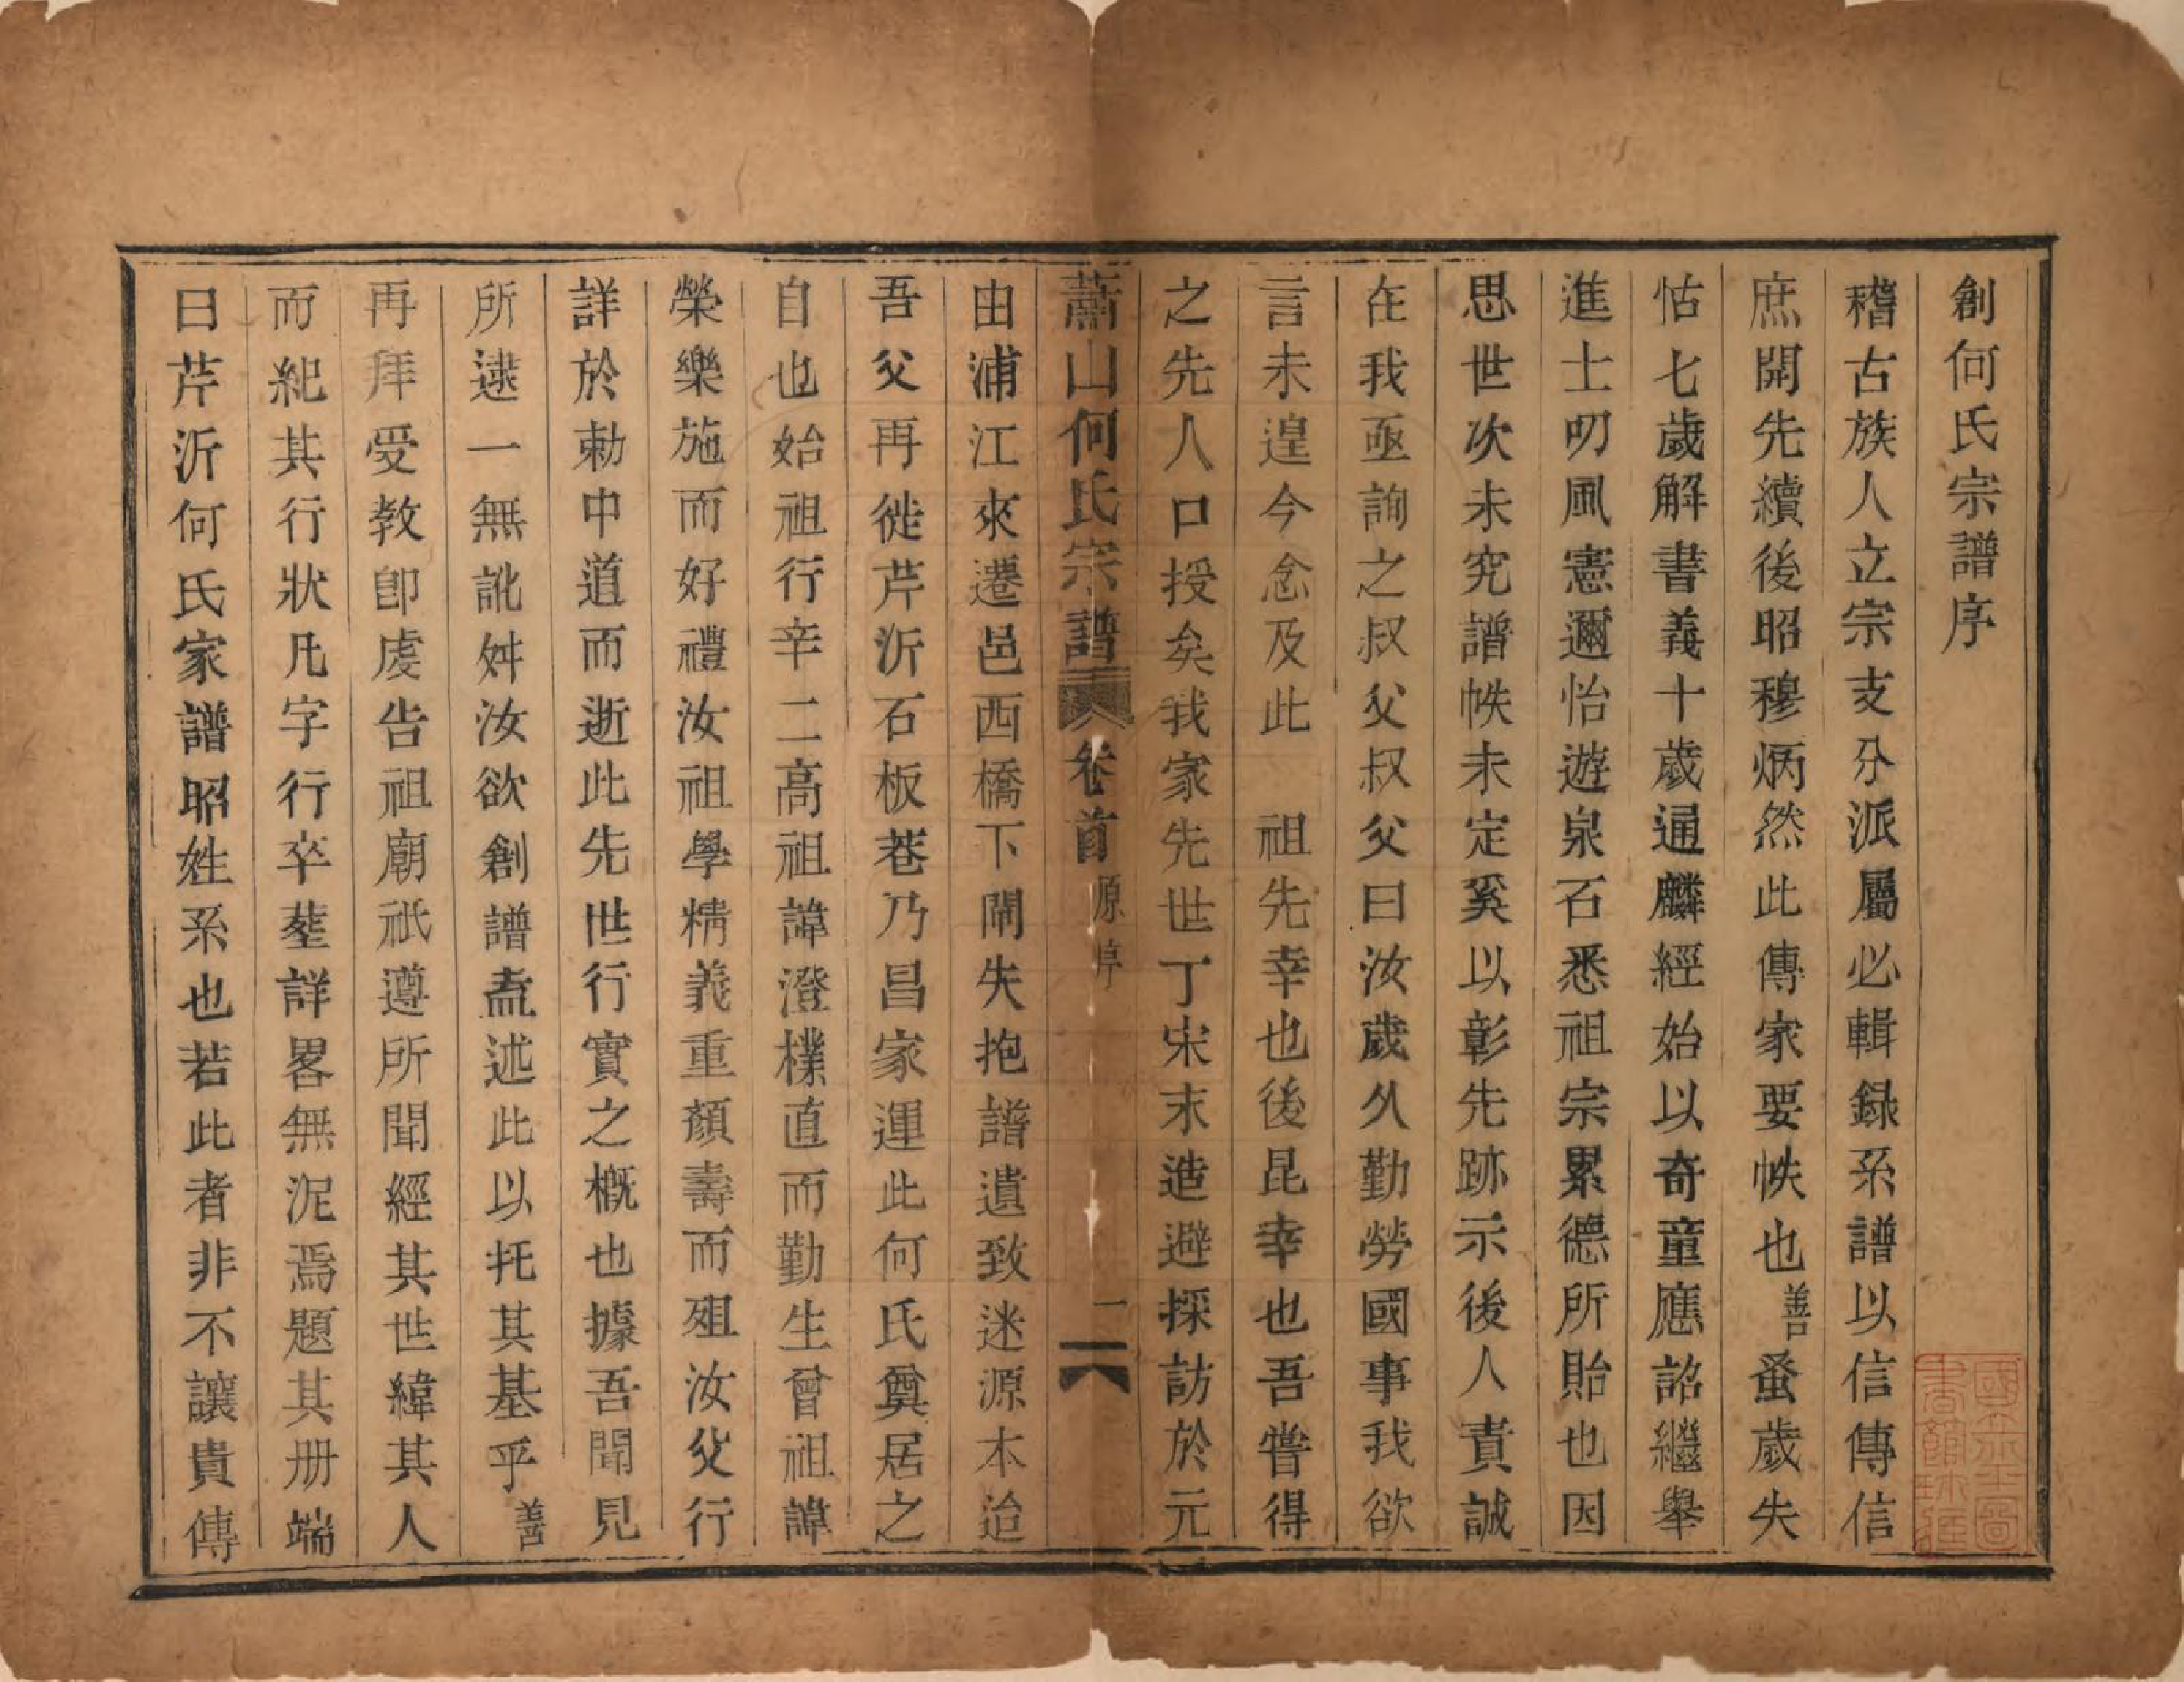 創何氏宗譜序
稽古族人立宗支分派屬必輯録系譜以信傳信
庶開先續後昭穆炳然此傳家要帙也善蚤歲失
怙七歲解書義十歲通麟經始以奇童應詔繼舉
進士叨風憲邇怡遊泉石悉祖宗累德所貽也因
思世次未究譜帙未定奚以彰先跡示後人責誠
在我亟詢之叔父叔父曰汝歲久勤勞國事我欲
言未遑今念及此　祖先幸也後昆幸也吾嘗得
之先人口授矣我家先世丁宋末造避採訪於元
蕭山何氏宗譜　卷首　原序　一
由浦江來遷邑西橋下閘失抱譜遺致迷源本迨
吾父再徙芹沂石板巷乃昌家運此何氏奠居之
自也始祖行辛二高祖諱澄樸直而勤生曾祖諱
榮樂施而好禮汝祖學精義重顏壽而殂汝父行
詳於勅中道而逝此先世行實之概也據吾聞見
所逮一無訛舛汝欲創譜盍述此以托其基乎善
再拜受教卽虔告祖廟祇遵所聞經其世緯其人
而紀其行狀凡字行卒塟詳畧無泥焉題其册端
曰芹沂何氏家譜昭姓系也若此者非不讓貴傳